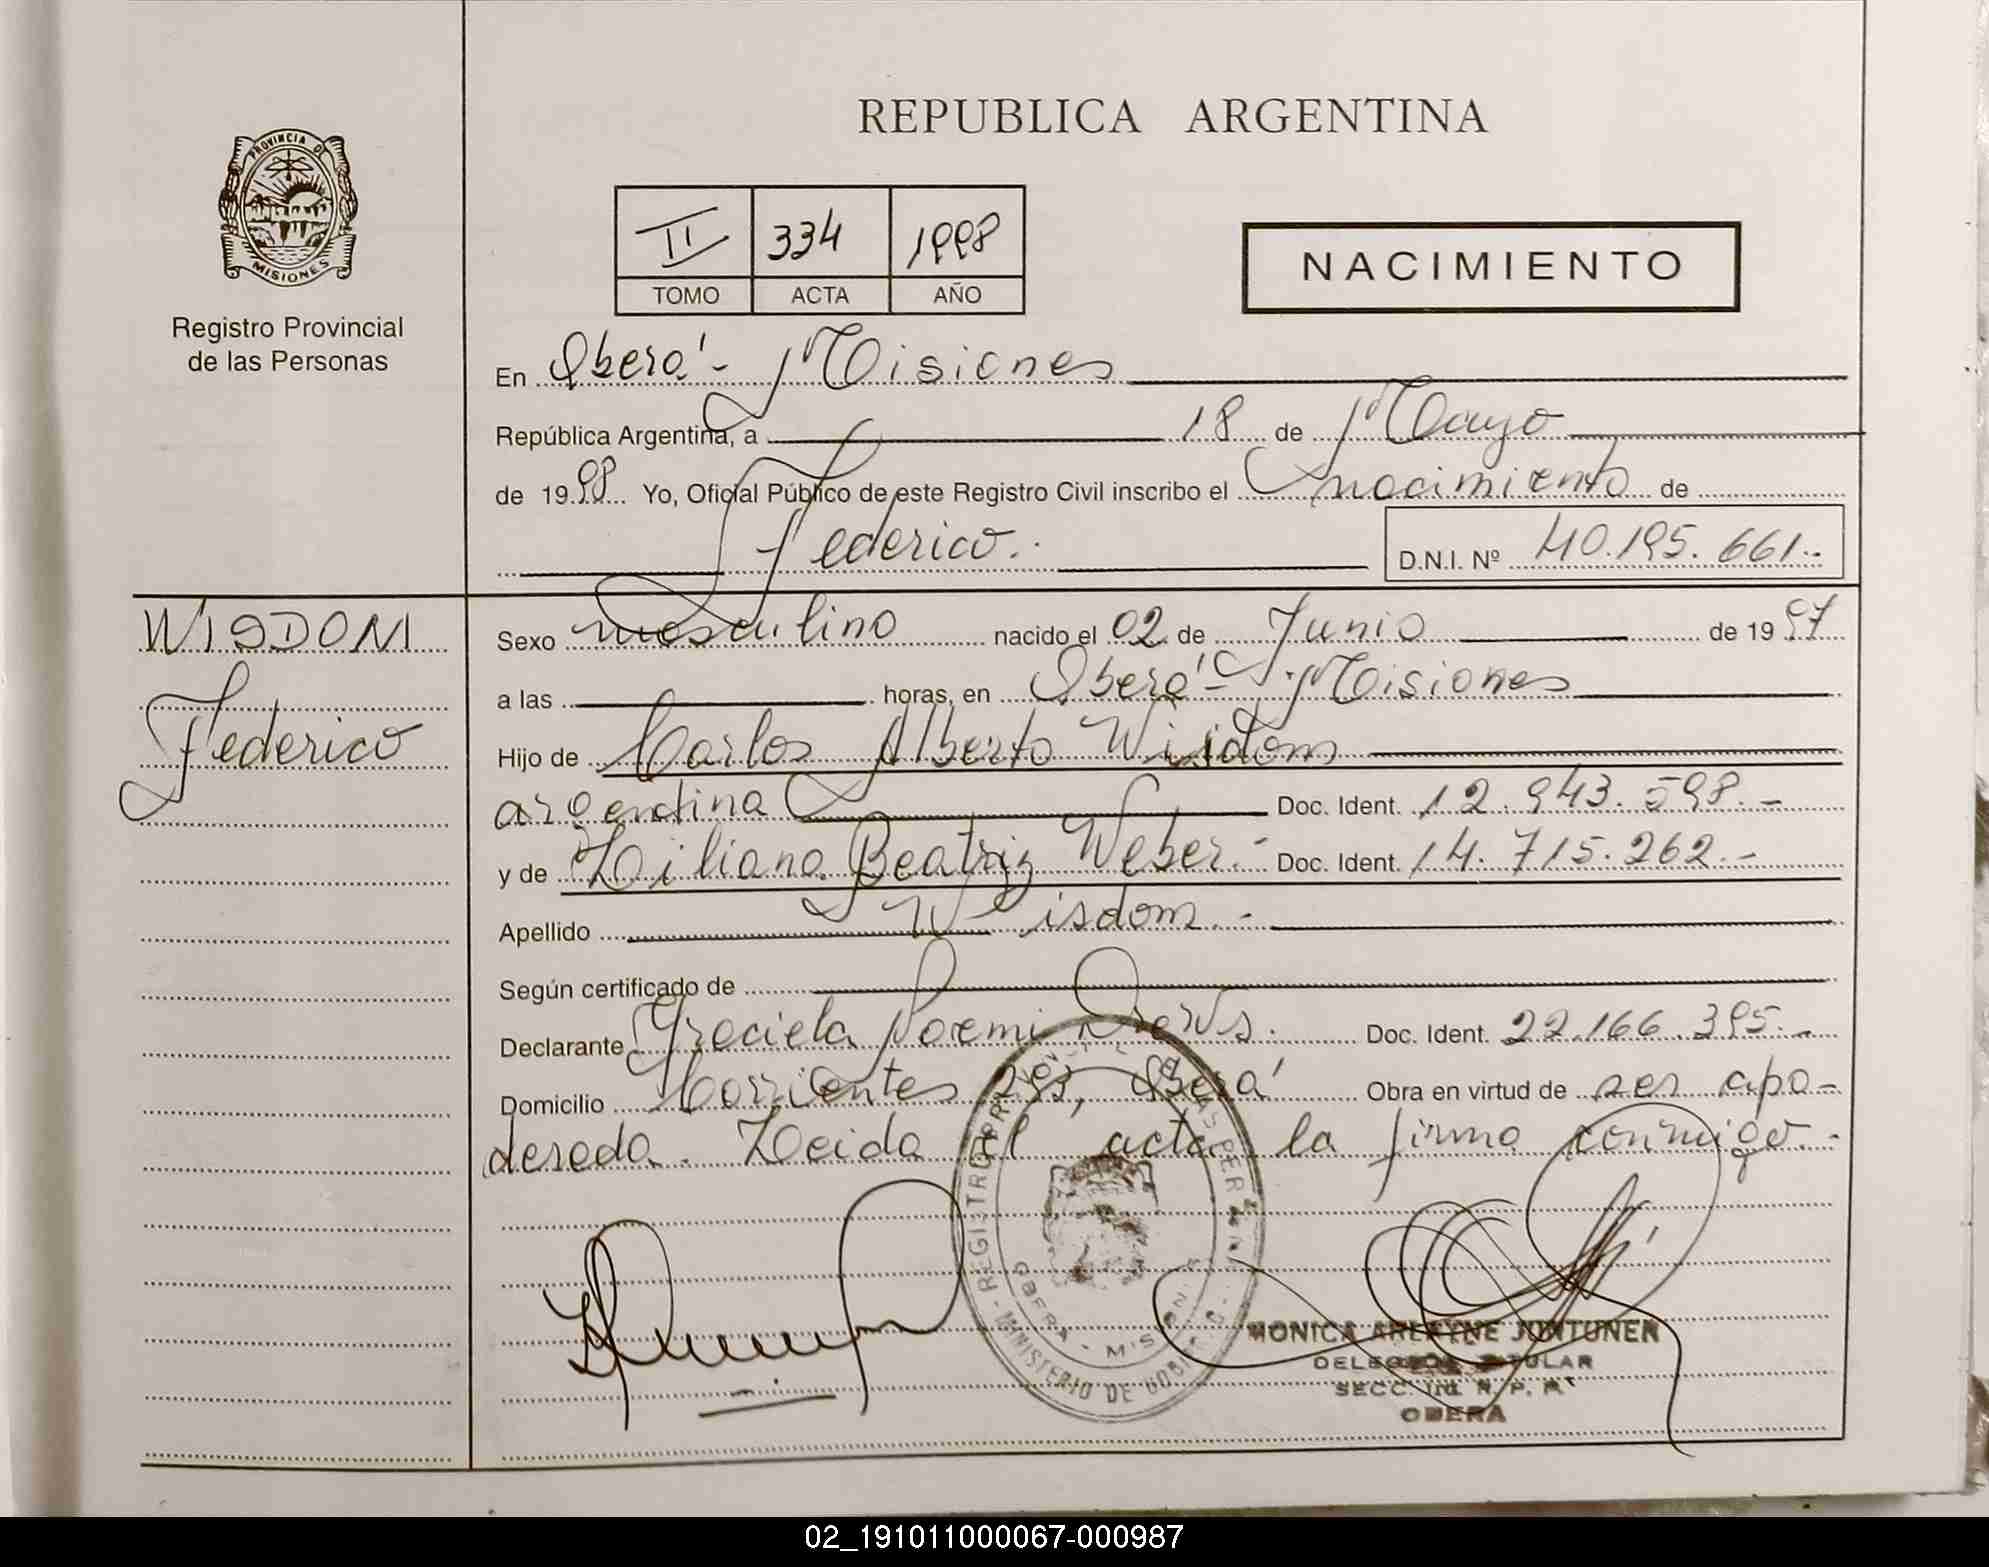 REPUBLICA ARGENTINA
PROVINCIA DE
MISIONES
Registro Provincial
de las Personas
II 334 1998
TOMO ACTA AÑO
NACIMIENTO
En Oberá - Misiones
República Argentina, a 18 de Mayo
de 1998 Yo, Oficial Público de este Registro Civil inscribo el nacimiento de
Federico.. D.N.I. Nº 40.195.661..
WISDOM
Federico
Sexo masculino nacido el 02 de Junio de 1997
a las horas, en Oberá - Misiones
Hijo de Carlos Alberto Wisdom
argentina Doc. Ident. 12.943.598.-
y de Liliana Beatriz Weber.- Doc. Ident. 14.715.262.-
Apellido Wisdom.-
Según certificado de
Declarante Graciela Noemi Doc. Ident. 22.166.395.-
Domicilio Corrientes Oberá Obra en virtud de ser apo-
derada. Leida el acta la firma conmigo.-
REGISTRO PROVINCIAL DE LAS PERSONAS
OBERA - MISIONES
MINISTERIO DE GOBIERNO
MONICA ARLAYNE JUNTUNEN
DELEGADA TITULAR
SECC. R. P. P.
OBERA
02_191011000067-000987